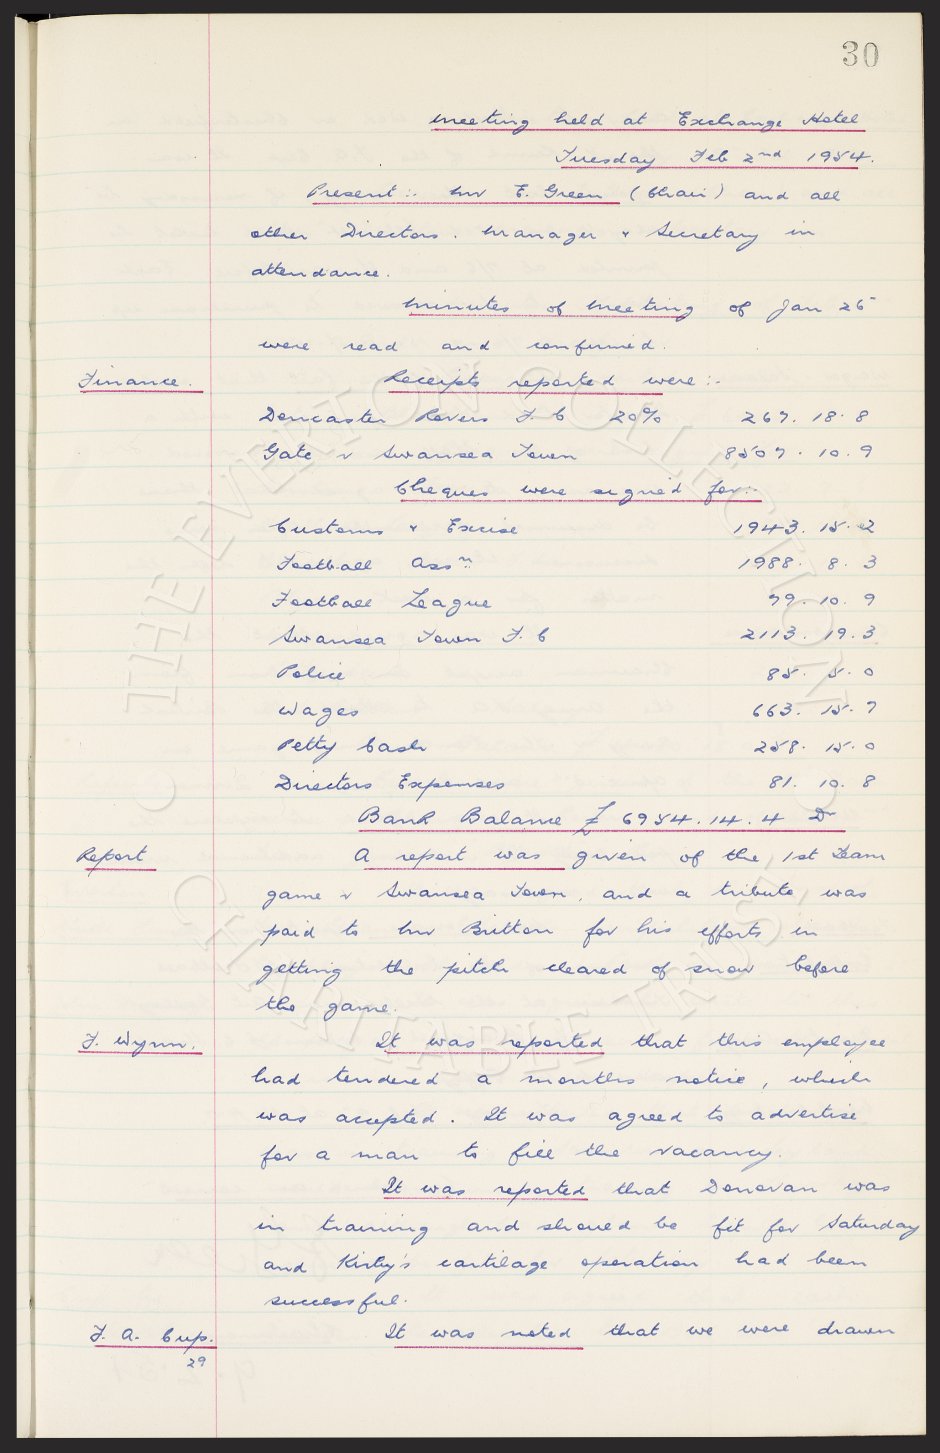 30
Meeting held at Exchange Hotel
Tuesday Feb 2nd 1954.
Present :- Mr E. Green (Chair) and all
other Directors. Manager & Secretary in
attendance.
Minutes of Meeting of Jan 26
were read and confirmed.
Finance. Receipts reported were :-
Doncaster Rovers F. C 20% 267. 18. 8
Gate v Swansea Town 8507. 10. 9
Cheques were signed for :-
Customs & Excise 1943. 15. 2
Football Assn. 1988. 8. 3
Football League 79. 10. 9
Swansea Town F. C 2113. 19. 3
Police 85. 5. 0
Wages 663. 15. 7
Petty Cash 258. 15. 0
Directors Expenses 81. 10. 8
Bank Balance £6954. 14. 4 Dr
Report A report was given of the 1st Team
game v Swansea Town, and a tribute was
paid to Mr Britton for his efforts in
getting the pitch cleared of snow before
the game.
F. Wynn. It was reported that this employee
had tendered a months notice, which
was accepted. It was agreed to advertise
for a man to fill the vacancy.
It was reported that Donovan was
in training and should be fit for Saturday
and Kirby's cartilage operation had been
successful.
F. A. Cup. It was noted that we were drawn
29
THE EVERTON COLLECTION
CHARITABLE TRUST